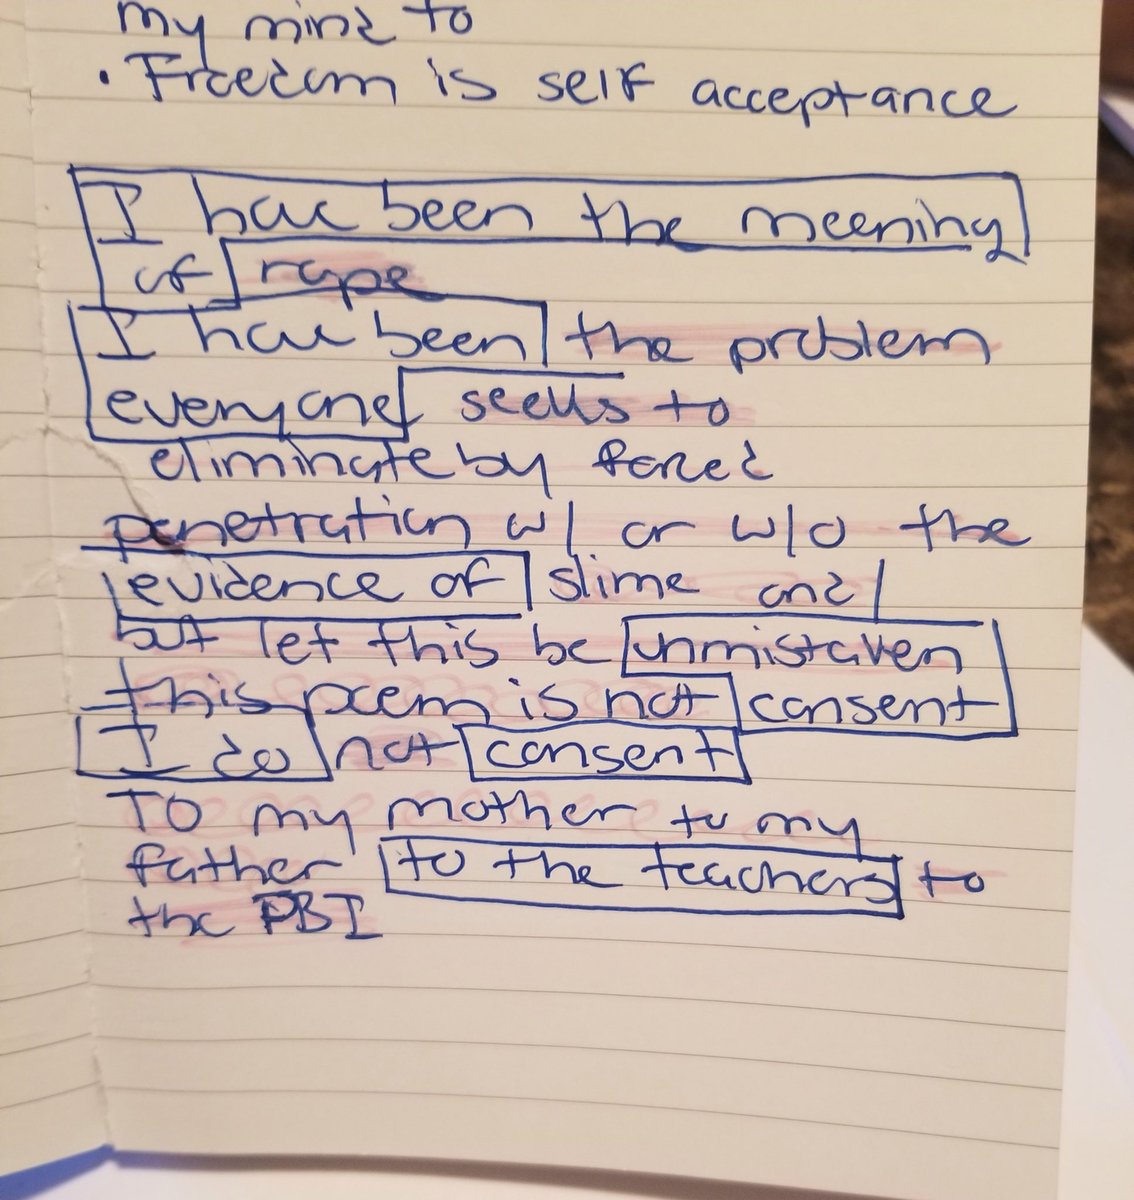 my mind to
• Freedom is self acceptance
I have been the meening
of rape
I have been the problem
everyone seeks to
eliminate by forced
penetration w/ or w/o the
evidence of slime and
but let this be unmistaken
this poem is not consent
I do not consent
To my mother to my
father to the teachers to
the FBI